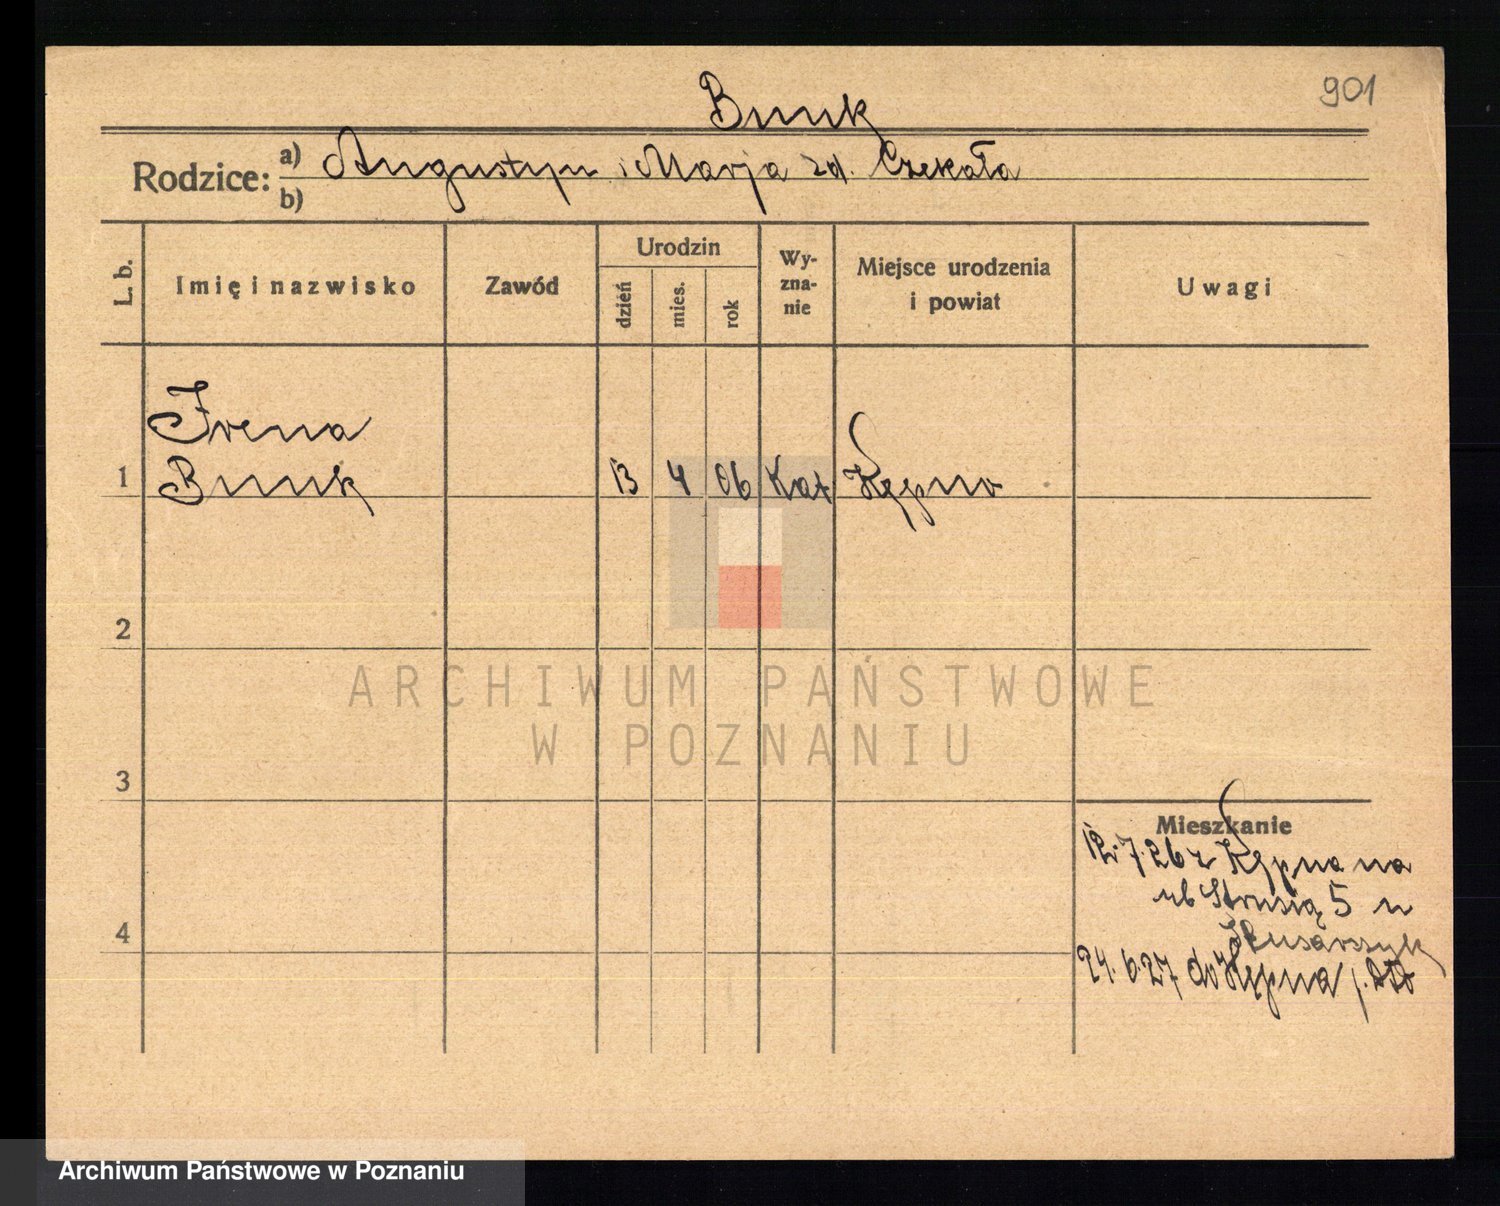 901
Bunk
Rodzice: a) Augustyn i Marja zd. Czekała
b)
L. b.
Imię i nazwisko
Zawód
Urodzin
dzień
mies.
rok
Wy-
zna-
nie
Miejsce urodzenia
i powiat
Uwagi
Irena
1 Bunk 13 4 06 Kat Kępno
2
3
4
Mieszkanie
12.7.26 z Kępna na
ul Strusią 5 u
24.6.27 do Kępna
ARCHIWUM PAŃSTWOWE
W POZNANIU
Archiwum Państwowe w Poznaniu